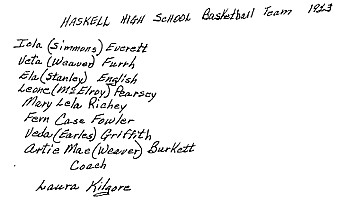 HASKELL HIGH SCHOOL Basketball Team 1923
Iola (Simmons) Everett
Veta (Weaver) Furrh
Ela (Stanley) English
Leone (McElroy) Pearsey
Mary Lela Richey
Fern Case Fowler
Veda (Earles) Griffith
Artie Mae (Weaver) Burkett
Coach
Laura Kilgore